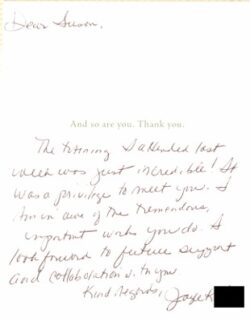 Dear Susan,
And so are you. Thank you.
The training I attended last
week was just incredible! It
was a privilege to meet you. I
am in awe of the tremendous,
important work you do. I
look forward to future support
and collaboration w. you
Kind regards, Joyce K